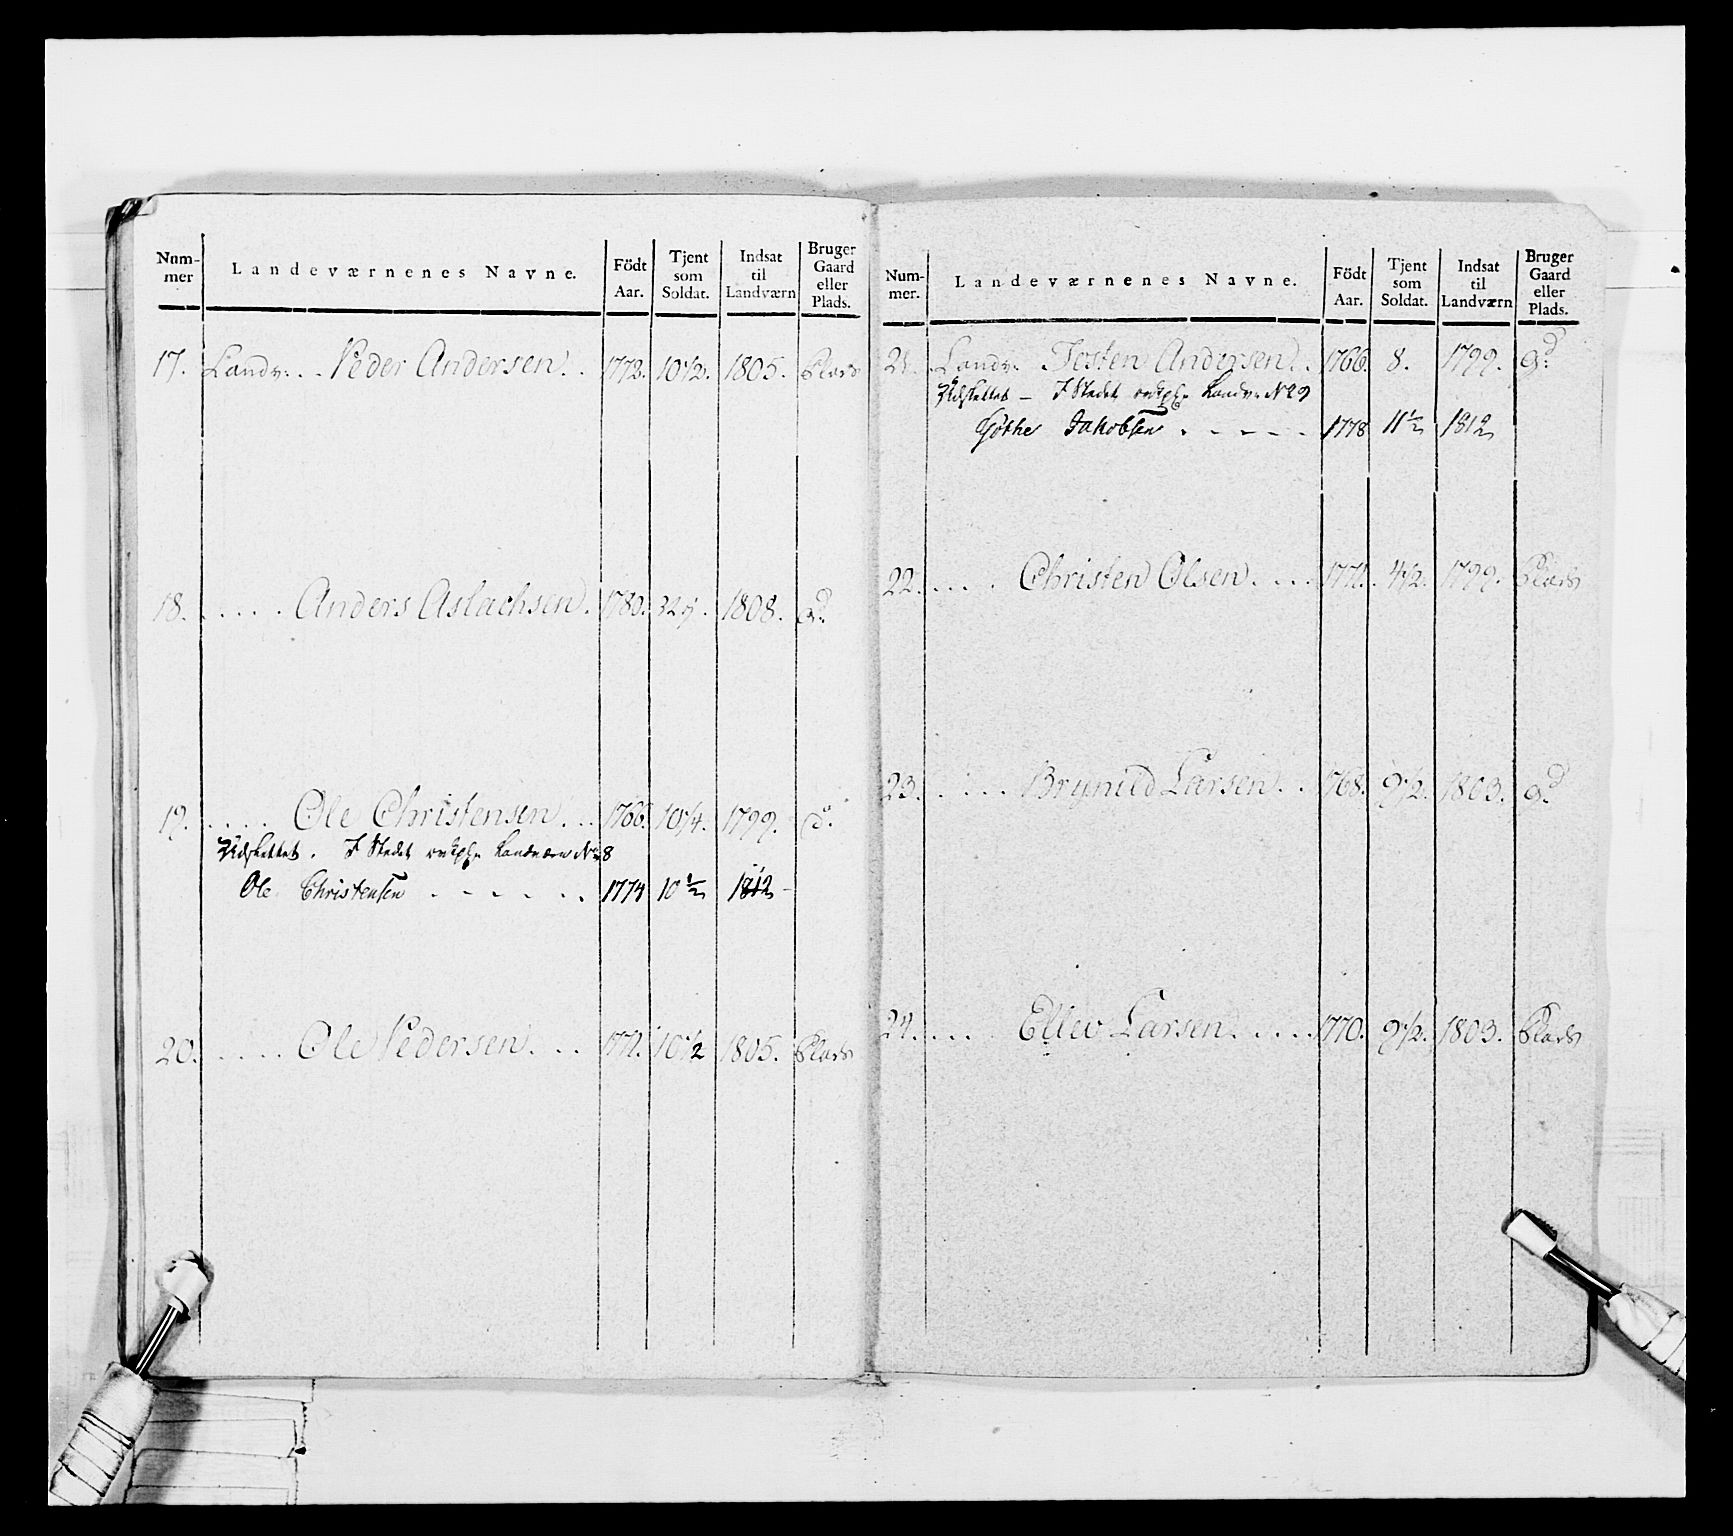 Num-
mer
Landeværnenes Navne.
Födt
Aar.
Tjent
som
Soldat.
Indsat
til
Landværn
Bruger
Gaard
eller
Plads.
17. Landv. . Peder Andersen . . 1772. 10 1/2. 1805. Plads
18. . . . . Anders Aslachsen . 1780. 1808. Gd.
19. . . . . Ole Christensen . . 1766. 10 1/4. 1799. do.
Udslettet . I Stedet Landværn No 8
Ole Christensen . . . . . . 1774 10 1/2 1812
20. . . . . Ole Pedersen . . . 1771. 10 1/2 1805. Plads
Num-
mer.
Landeværnenes Navne.
Födt
Aar.
Tjent
som
Soldat.
Indsat
til
Landværn
Bruger
Gaard
eller
Plads.
21. Landv. Tosten Andersen . . 1766. 8. 1799. Gd.
Udslettet – I Stedet Landv. No 29
Göthe Jakobsen . . . . . 1778 11 1/2 1812
22. . . . Christen Olsen . . . . 1771. 4 1/2. 1799. Plads
23. . . . . Brynild Larsen . . 1768. 9 1/2. 1803. Gd.
24. . . . Ellev Larsen . . . . 1770. 9 1/2. 1803. Plads